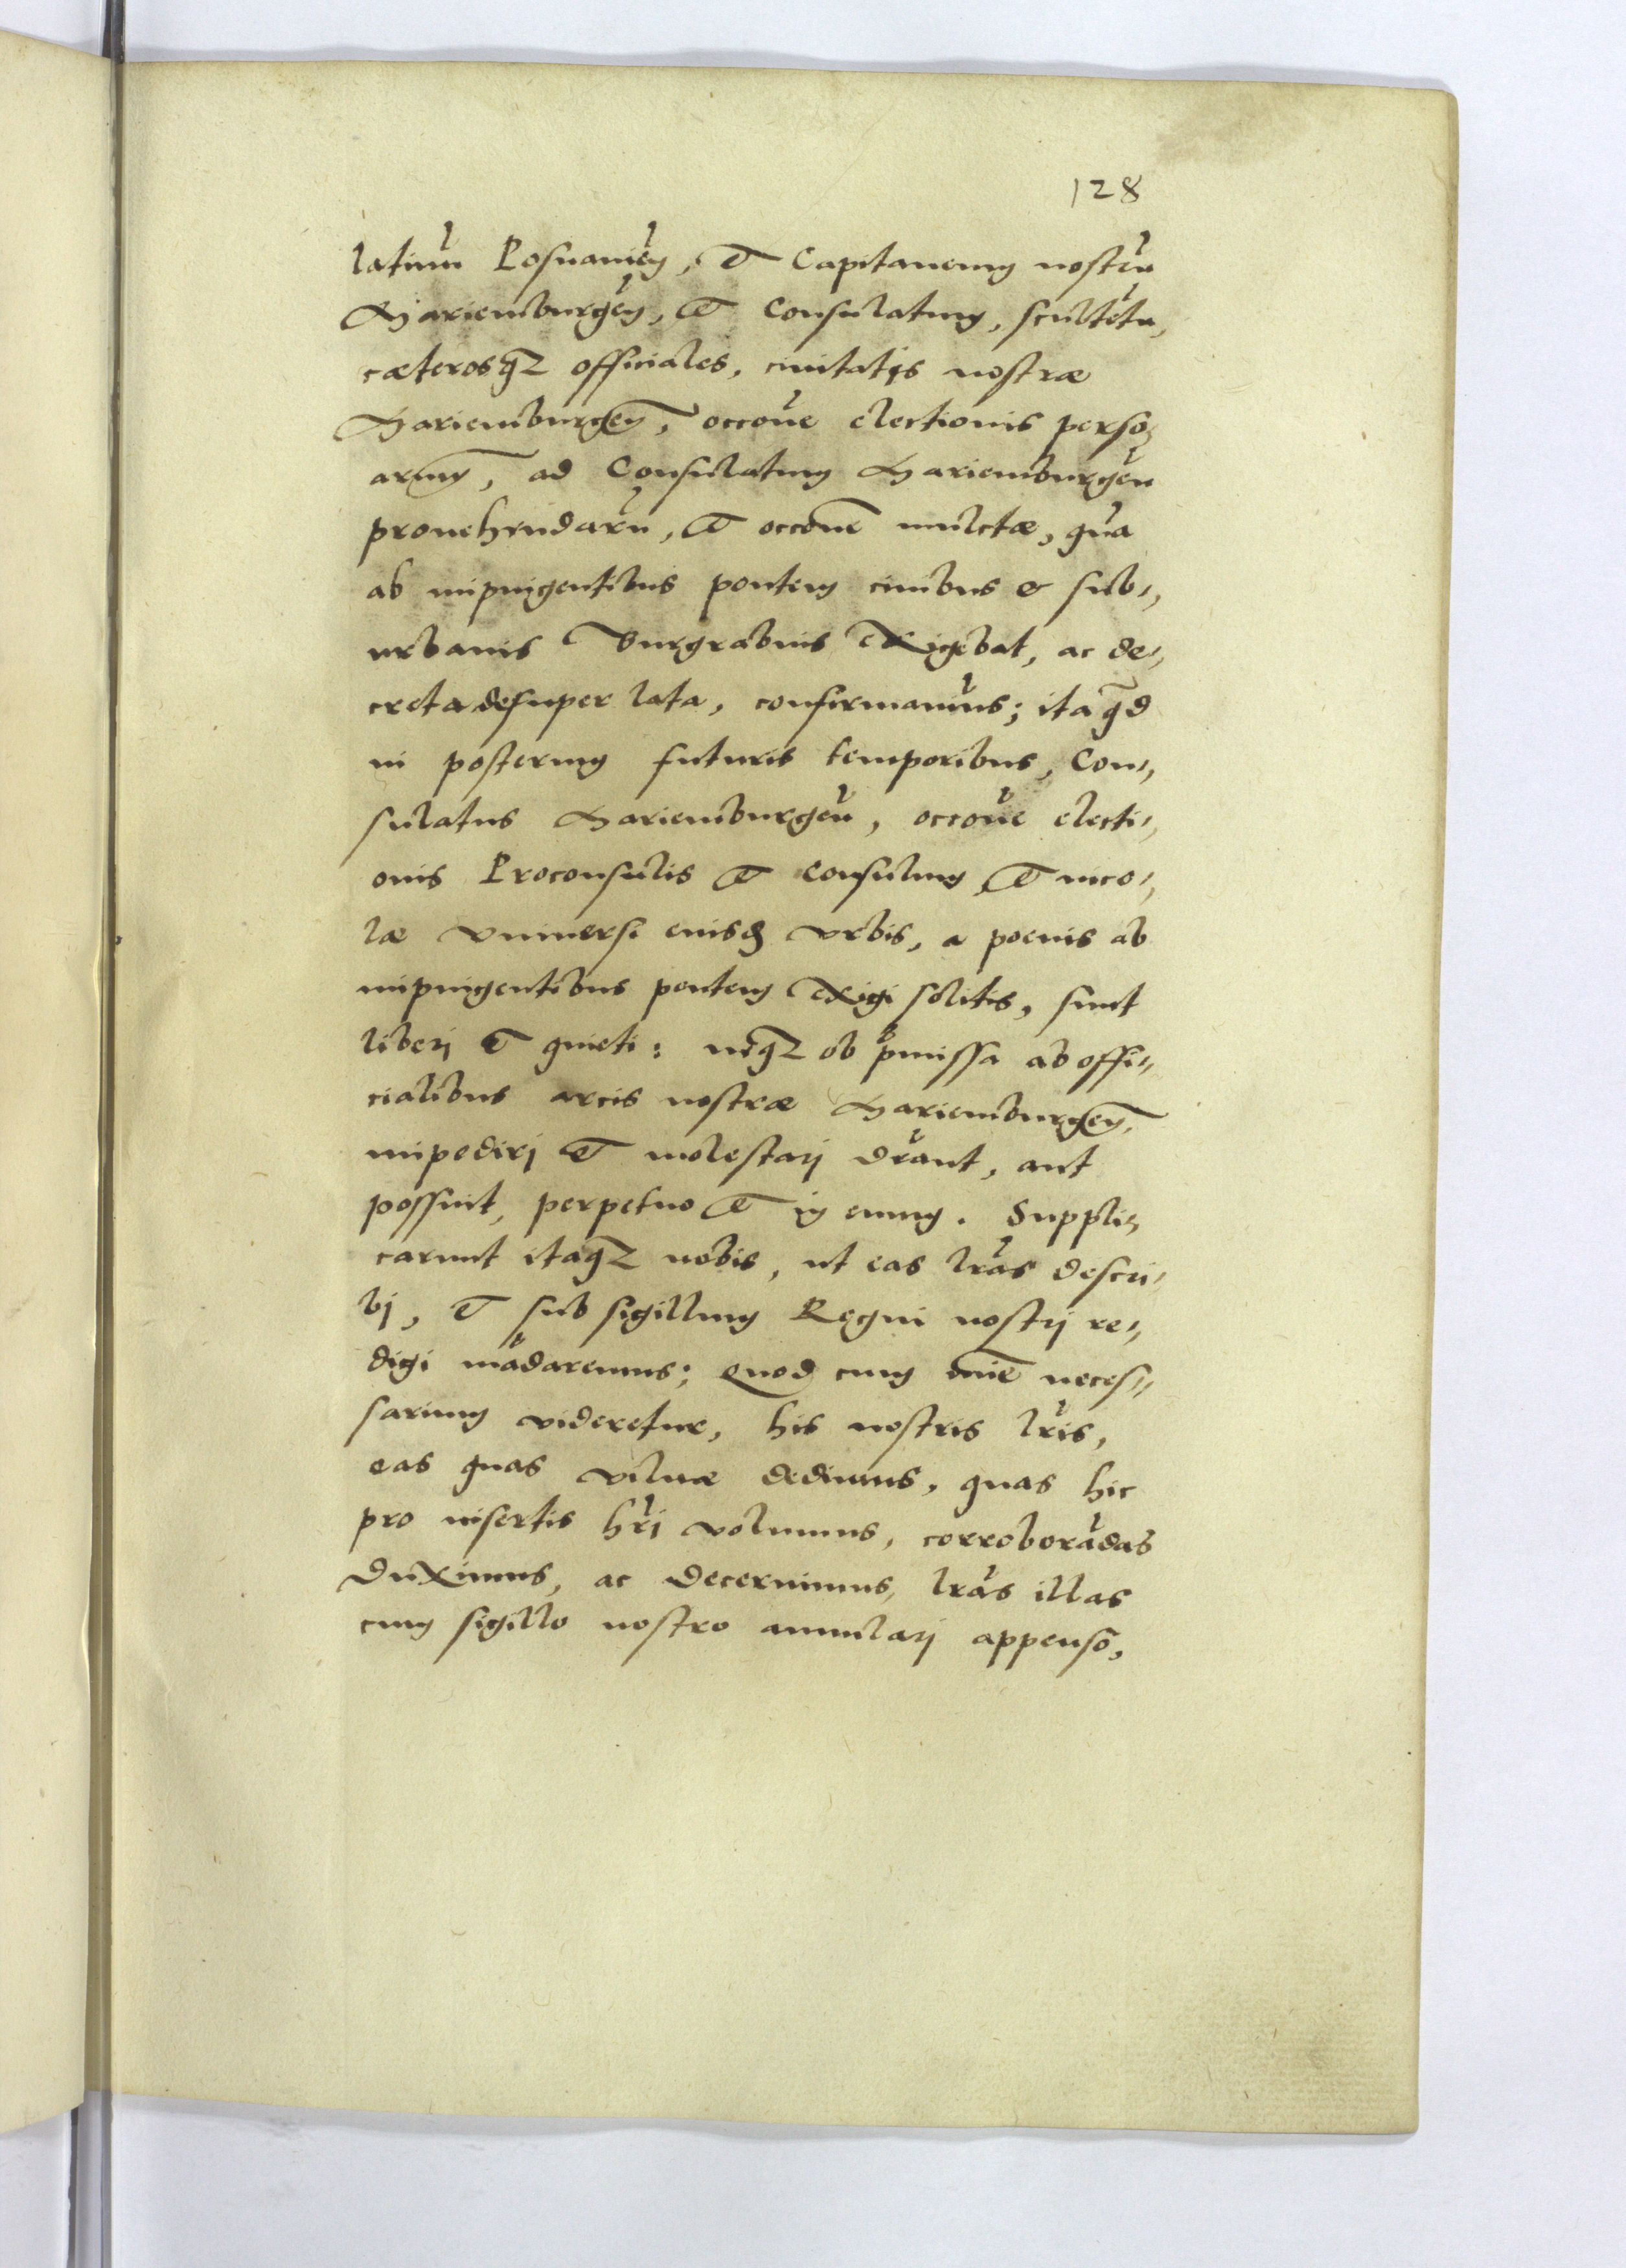 128
latinu̅ Posnanien̅, et Capitaneum nostru̅
Mariemburgen̅, et Consulatum, scultetu̅,
cæterosq₃ officiales, ciuitatis nostræ
Mariemburgen̅, occo̅ne electionis perso=
arum, ad Consulatum Mariemburgen̅
prouehendaru̅, et occo̅ne mulctæ, qua̅
ab impingentibus pontem ciuibus & sub=
urbanis Burgrabius exigebat, ac de=
creta desuper lata, confirmauim̅us; ita q̅d
in posterum futuris temporibus, Con=
sulatus Mariemburgen̅, occo̅ne electi=
onis Proconsulis et Consulum, et inco=
læ vniuersi eiusd̅ vrbis, a poenis ab
impingentibus pontem exigi solitis, sint
liberi et quieti: neq₃ ob p̅missa ab offi=
cialibus arcis nostræ Mariemburgen̅,
impediri et molestari d̅eant, aut
possint, perpetuo et in euum. Suppli=
carunt itaq₃ nobis, ut eas l̅ras descri=
bj, et sub sigillum Regni nostrj re=
digi ma̅daremus; Quod cum om̅ie neces=
sarium videretur, his nostris l̅ris,
eas quas vilnæ dedimus, quas hic
pro insertis h̅ri volumus, corrobora̅das
duximus, ac decernimus, l̅ras illas
cum sigillo nostro annularj appenso,